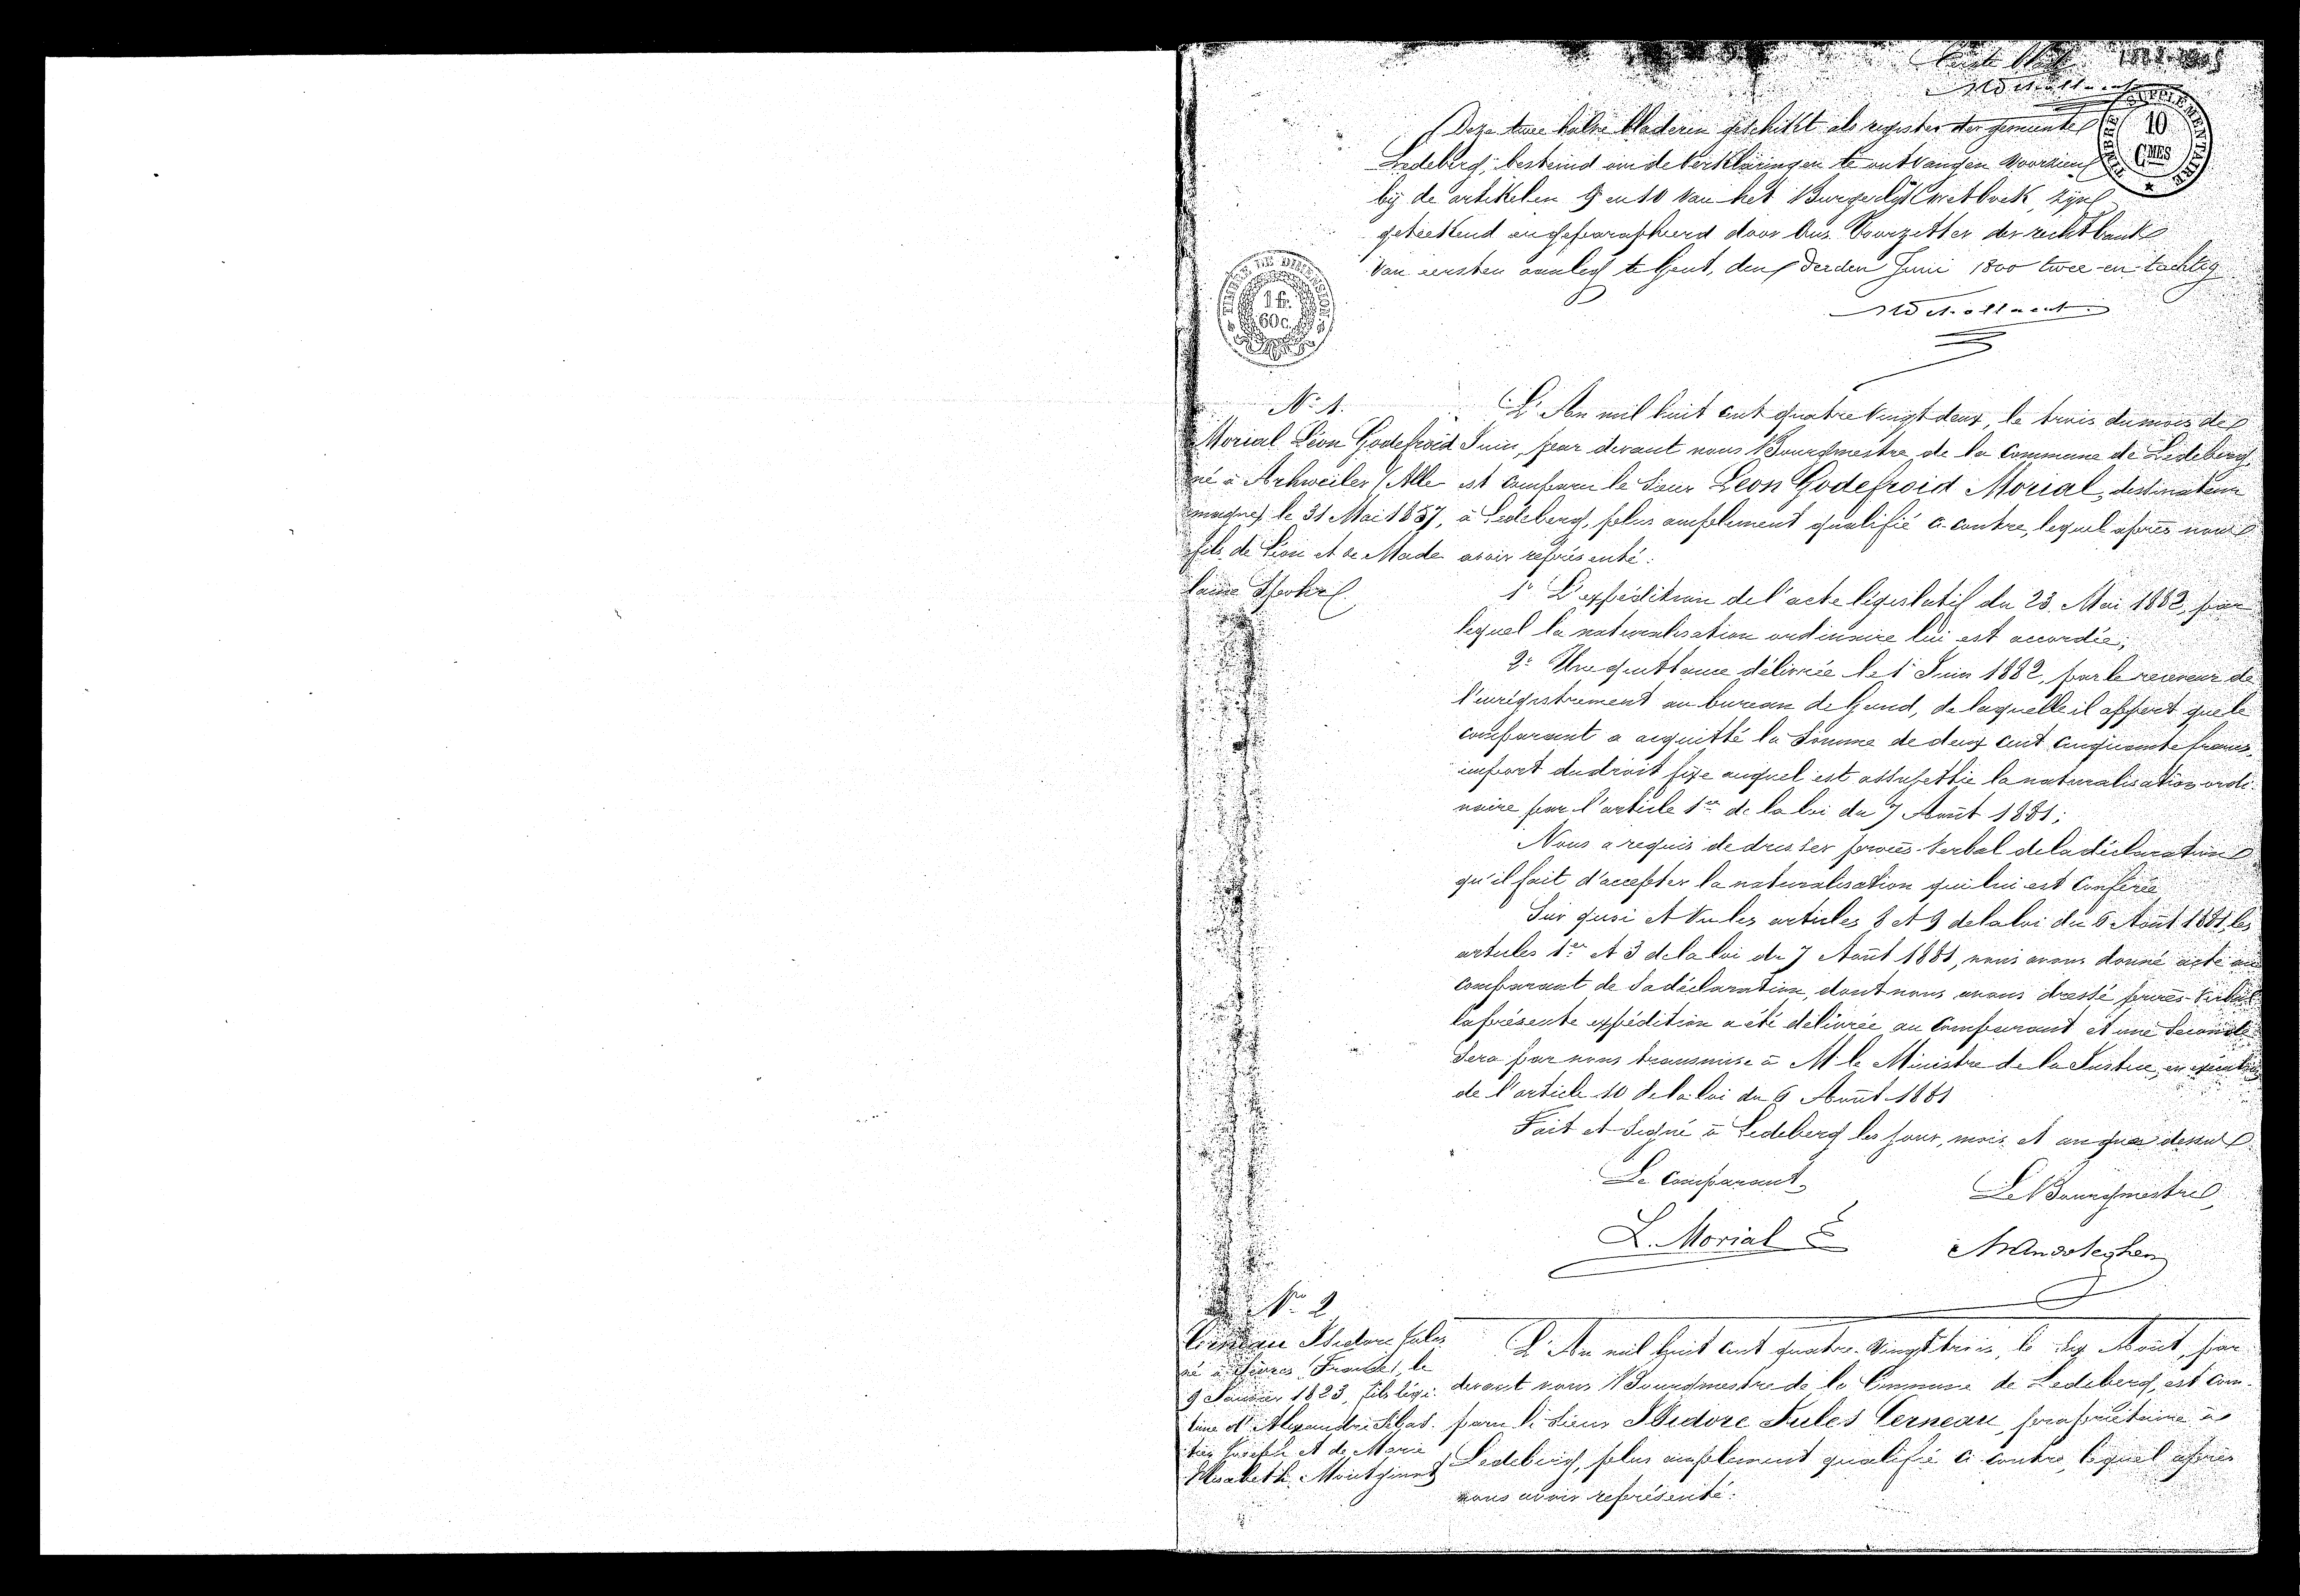 Eerste Blad
1882-1905
TIMBRE SUPPLÉMENTAIRE
10
CMES
Deze twee halve bladeren geschikt als register der gemeente
Ledeberg, bestemd om de verklaringen te ontvangen voorzien
bij de artikelen 9 en 10 van het Burgerlijk Wetboek, zijn
geteekend en geparapheerd door Ons Voorzitter der rechtbank
van eersten aanleg te Gent, den derden Juni 1800 twee-en-tachtig
TIMBRE DE DIMENSION
1 fr.
60 c.
N° 1.
Morial Léon Godefroid
né à Ahrweiler (Alle
magne) le 31 Mai 1857,
fils de Léon et de Made
laine
L'An mil huit cent quatre vingt deux, le trois du mois de
Juin, par devant nous Bourgmestre de la Commune de Ledeberg,
est comparu le Sieur Leon Godefroid Morial, destinateur
à Ledeberg, plus amplement qualifié ci-contre, lequel après nous
avoir représenté:
1° L'expédition de l'acte législatif du 23 Mai 1882, par
lequel la naturalisation ordinaire lui est accordée;
2° Une quittance délivrée le 1 Juin 1882, par le receveur de
l'enrégistrement au bureau de Gand, de laquelle il appert que le
comparant a acquitté la somme de deux cent cinquante francs,
import du droit fixe auquel est assujettie la naturalisation ordi-
naire par l'article 1er de la loi du 7 Août 1881;
Nous a requis de dresser procès-verbal de la déclaration
qu'il fait d'accepter la naturalisation qui lui est conférée
Sur quoi et vu les articles 8 et 9 de la loi du 6 Août 1881, les
articles 1er et 3 de la loi du 7 Août 1881, nous avons donné acte au
comparant de sa déclaration, dont nous avons dressé procès-verbal
la présente expédition a été délivrée au comparant et une seconde
sera par nous transmise à M le Ministre de la Justice, en exécution
de l'article 10 de la loi du 6 Août 1881
Fait et signé à Ledeberg les jour, mois et an que dessus
Le comparant,
Le Bourgmestre,
L. Morial
N° 2
Cerneau Isidore Jules
né à (France), le
9 Janvier 1823, fils légi-
time d'Alexandre Sébas-
tien Joseph et de Marie
Elisabeth
L'An mil huit cent quatre-vingt trois, le dix Août, par
devant nous Bourgmestre de la Commune de Ledeberg, est com-
paru le sieur Isidore Jules Cerneau, propriétaire à
Ledeberg, plus amplement qualifié ci-contre, lequel après
nous avoir représenté: